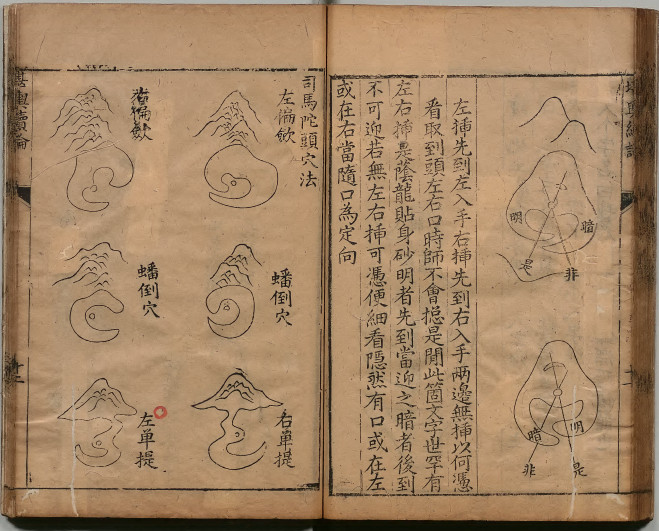 明
暗
是
非
暗
明
非
是
左揷先到左入手右揷先到右入手兩邊無揷以何憑
看取到頭左右口時師不會揔是閒此箇文字世罕有
左右揷是蔭龍貼身砂明者先到當迎之暗者後到
不可迎若無左右揷可憑便細看隱然有口或在左
或在右當隨口為定向
司馬陀頭穴法
左偏飲
蟠倒穴
右單提
右偏飲
蟠倒穴
左單提